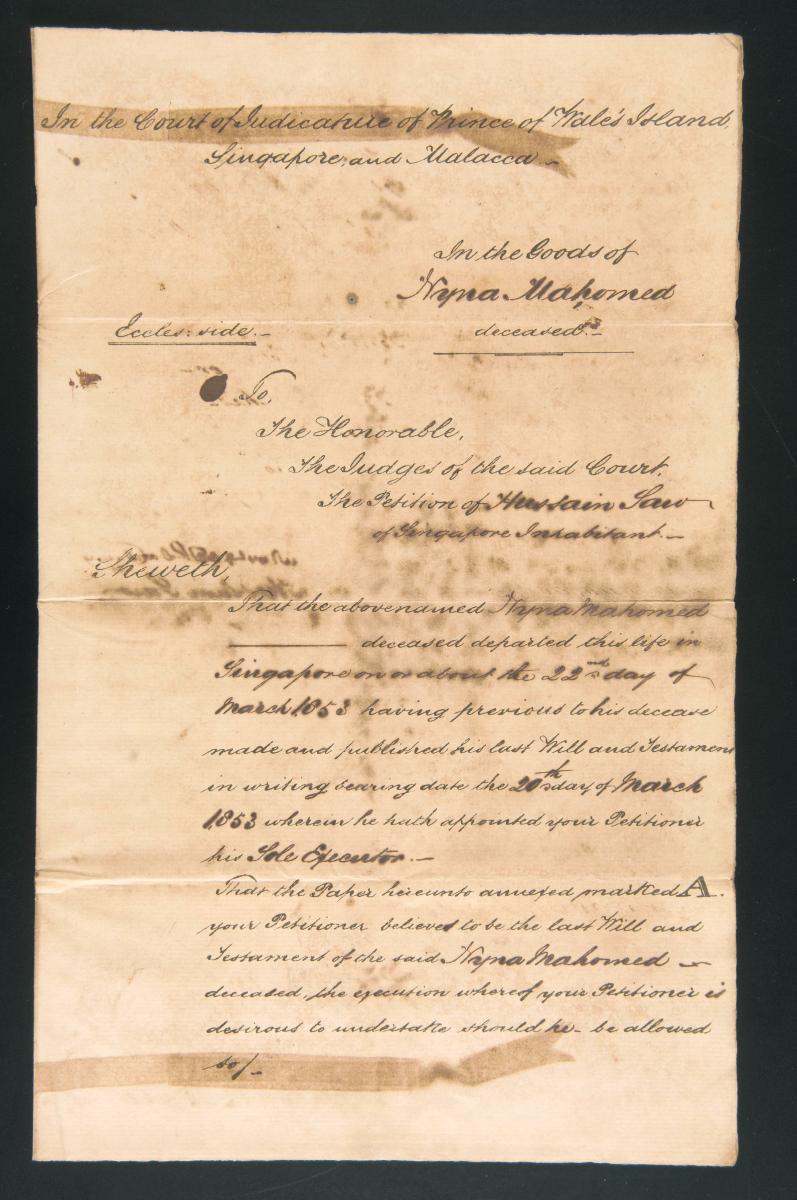 In the Court of Judicature of Prince of Wale's Island,
Singapore, and Malacca -
In the Goods of
Nyna Mahomed
deceased -
Eccles: side. -
To,
The Honorable,
The Judges of the said Court.
The Petition of Hussain Saw
of Singapore Inhabitant. -
Sheweth,
That the abovenamed Nyna Mahomed
deceased departed this life in
Singapore on or about the 22nd day of
March 1853 having previous to his decease
made and published his last Will and Testament
in writing bearing date the 20th day of March
1853 wherein he hath appointed your Petitioner
his Sole Executor. -
That the Paper hereunto annexed, marked A.
your Petitioner believes to be the last Will and
Testament of the said Nyna Mahomed -
deceased, the execution whereof your Petitioner is
desirous to undertake should he - be allowed
so/-